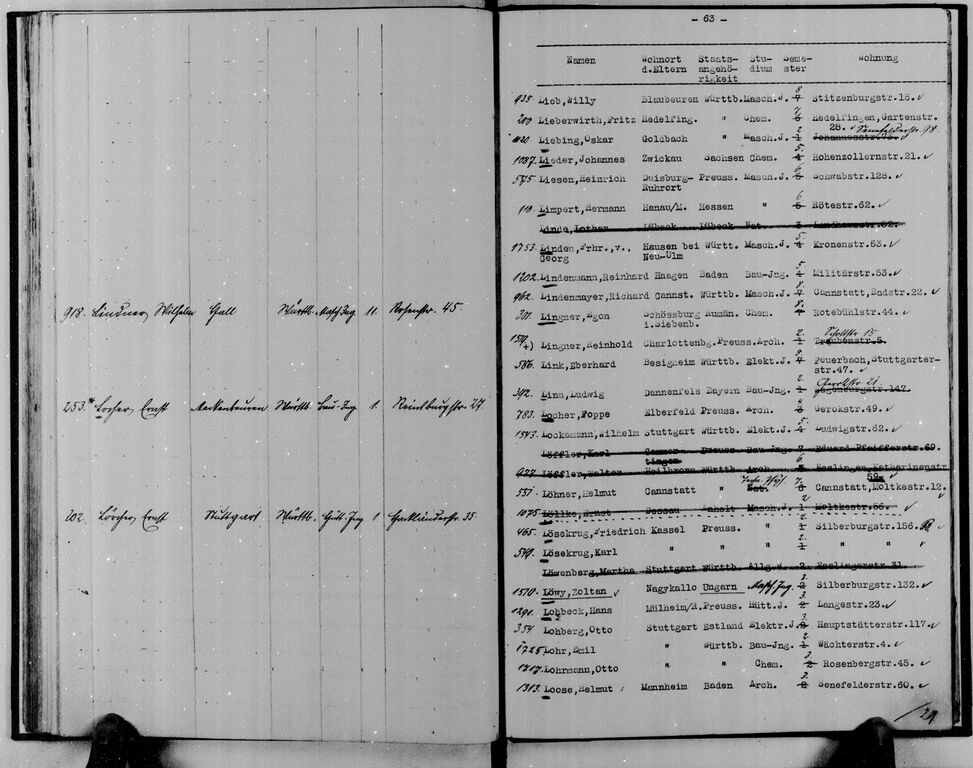 918. Lindner, Wilhelm Hall Württb. Masch.Jng. 11. Rosenstr. 45.
253.* Locher, Ernst Meckenbeuren Württb. Bau-Jng 1. Reinsburgstr. 27
202. Lörcher, Ernst Stuttgart Württb. Hütt.-Jng 1 Hackländerstr. 35.
- 63 -
Namen Wohnort Staats- Stu- Seme- Wohnung
d.Eltern angehö- dium ster
rigkeit
8
935. Lieb,Willy Blaubeuren Württb. Masch.J. 7 Stitzenburgstr.15.
7
200 Lieberwirth,Fritz Hedelfing. " Chem. 6 Hedelfingen,Gartenstr.
28. Sennefelderstr. 98
2
1120 Liebing,Oskar Goldbach " Masch.J. 1 Johannesstr.
5.
1087. Lieder,Johannes Zwickau Sachsen Chem. 4 Hohenzollernstr.21.
6
575. Liesen,Heinrich Duisburg- Preuss. Masch.J. 5 Schwabstr.128.
Ruhrort
6
110. Limpert,Hermann Hanau/M. Hessen " 5 Rötestr.62.
Linda,Lothar Lübeck Lübeck Nat. 3 Landhausstr.52.
5.
1753. Linden,Frhr.,v., Hausen bei Württ. Masch.J. 4 Kronenstr.53.
Georg Neu-Ulm
5.
1202. Lindenmann,Reinhard Haagen Baden Bau-Jng. 4 Militärstr.53.
8.
962. Lindenmayer,Richard Cannst. Württb. Masch.J. 7 Cannstatt,Badstr.22.
8.
301. Lingner,Egon Schössburg Rumän. Chem. 7 Rotebühlstr.44.
i.Siebenb.
2. Schottstr. 15
Lingner,Reinhold Charlottenbg. Preuss. Arch. 1 Traubenstr.5.
8
586. Link,Eberhard Besigheim Württb. Elekt.J. 7 Feuerbach,Stuttgarter-
str.47.
2. Gerokstr. 21.
392. Linn,Ludwig Dannenfels Bayern Bau-Jng. 1 Hegenburgstr.147.
783. Locher,Poppe Elberfeld Preuss. Arch. Gerokstr.49.
5
1543. Lockemann,Wilhelm Stuttgart Württb. Elekt.J. 4 Ludwigstr.62.
Löffler,Karl Gammer- Preuss. Bau-Jng. 7 Eduard Pfeifferstr.69.
tingen
6.
977. Löffler,Walter Heilbronn Württb. Arch. 5 Esslingen,Katharinenstr
59.
551. Löhner,Helmut Cannstatt " Techn. Phys. 7. Cannstatt,Moltkestr.12.
2
1075 Löllke,Ernst Dessau Anhalt Masch.J. 1 Moltkestr.56.
2.
465. Lösekrug,Friedrich Kassel Preuss. " 1 Silberburgstr.156.
2.
549. Lösekrug,Karl " " " 1 " "
Löwenberg,Martha Stuttgart Württb. Allg.W. 2 Esslingerstr.31.
3.
1510. Löwy,Zoltan Nagykallo Ungarn Masch.Jng. 2 Silberburgstr.132.
3.
1291. Lohbeck,Hans Mülheim/R. Preuss. Hütt.J. 2 Langestr.23.
3.
354. Lohberg,Otto Stuttgart Estland Elektr.J. 2 Hauptstätterstr.117.
2
1725. Lohr,Emil " Württb. Bau-Jng. 1 Wächterstr.4.
3
1217. Lohrmann,Otto " " Chem. 2 Rosenbergstr.45.
3.
1313. Loose,Helmut Mannheim Baden Arch. 2 Senefelderstr.60.
/24